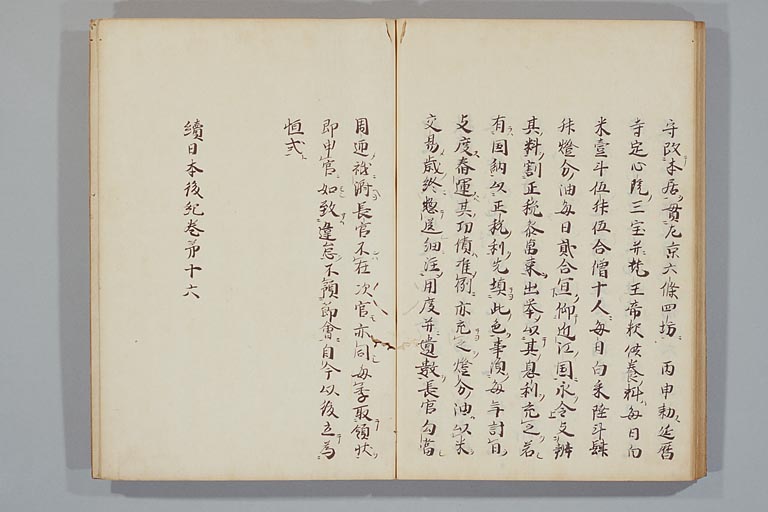 守改本居貫左京六條四坊 丙申勅延暦
寺定心院三宝并梵王帝釈供養料毎日白
米壹斗伍升伍合僧十人毎日白米陸斗肆
升燈分油毎日貳合宜仰近江国永令支辨
其料割正税各曽束出挙以其息利充之若
有国納以正税利先填此色事須毎年計自
支度舂運其功債准例亦充之燈分油以米
交易歳終惣送細注用度并遺数長官勾當
周迊祓済長官不在次官亦同毎季取領状
即申官如致違怠不預節會自今以後立為
恒式
續日本後紀巻第十六